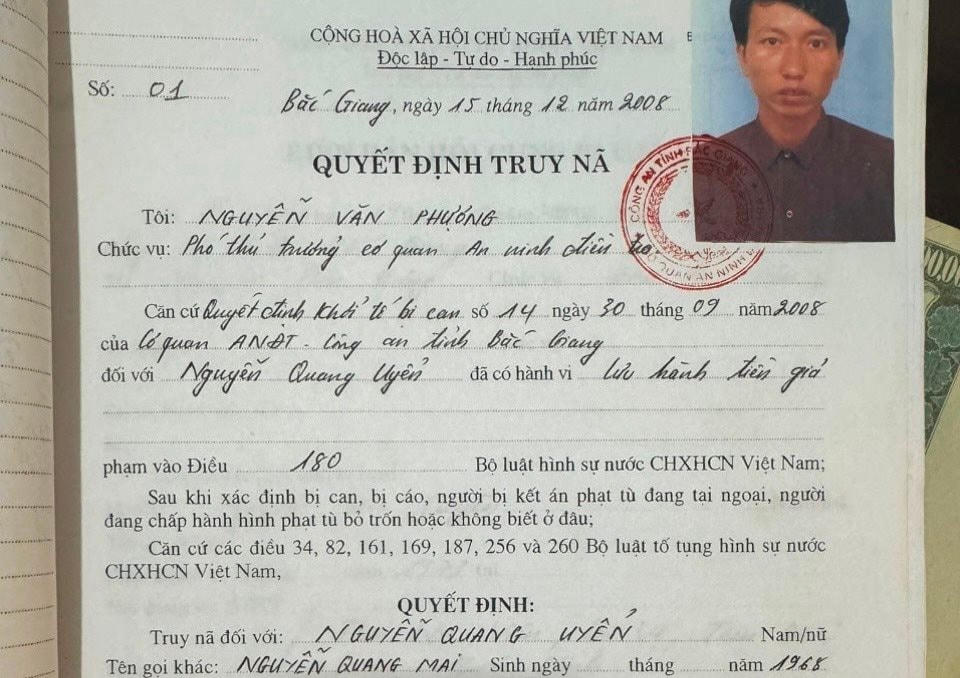 CỘNG HOÀ XÃ HỘI CHỦ NGHĨA VIỆT NAM
Độc lập - Tự do - Hạnh phúc
Số: 01
Bắc Giang, ngày 15 tháng 12 năm 2008
QUYẾT ĐỊNH TRUY NÃ
CÔNG AN TỈNH BẮC GIANG
QUAN AN NINH
Tôi: NGUYỄN VĂN PHƯƠNG
Chức vụ: Phó thủ trưởng cơ quan An ninh điều tra
Căn cứ Quyết định khởi tố bị can số 14 ngày 30 tháng 09 năm 2008
của Cơ quan ANĐT - Công an tỉnh Bắc Giang
đối với Nguyễn Quang Uyển đã có hành vi lưu hành tiền giả
phạm vào Điều 180 Bộ luật hình sự nước CHXHCN Việt Nam;
Sau khi xác định bị can, bị cáo, người bị kết án phạt tù đang tại ngoại, người
đang chấp hành hình phạt tù bỏ trốn hoặc không biết ở đâu;
Căn cứ các điều 34, 82, 161, 169, 187, 256 và 260 Bộ luật tố tụng hình sự nước
CHXHCN Việt Nam,
QUYẾT ĐỊNH:
Truy nã đối với: NGUYỄN QUANG UYỂN Nam/nữ
Tên gọi khác: NGUYỄN QUANG MAI Sinh ngày tháng năm 1968